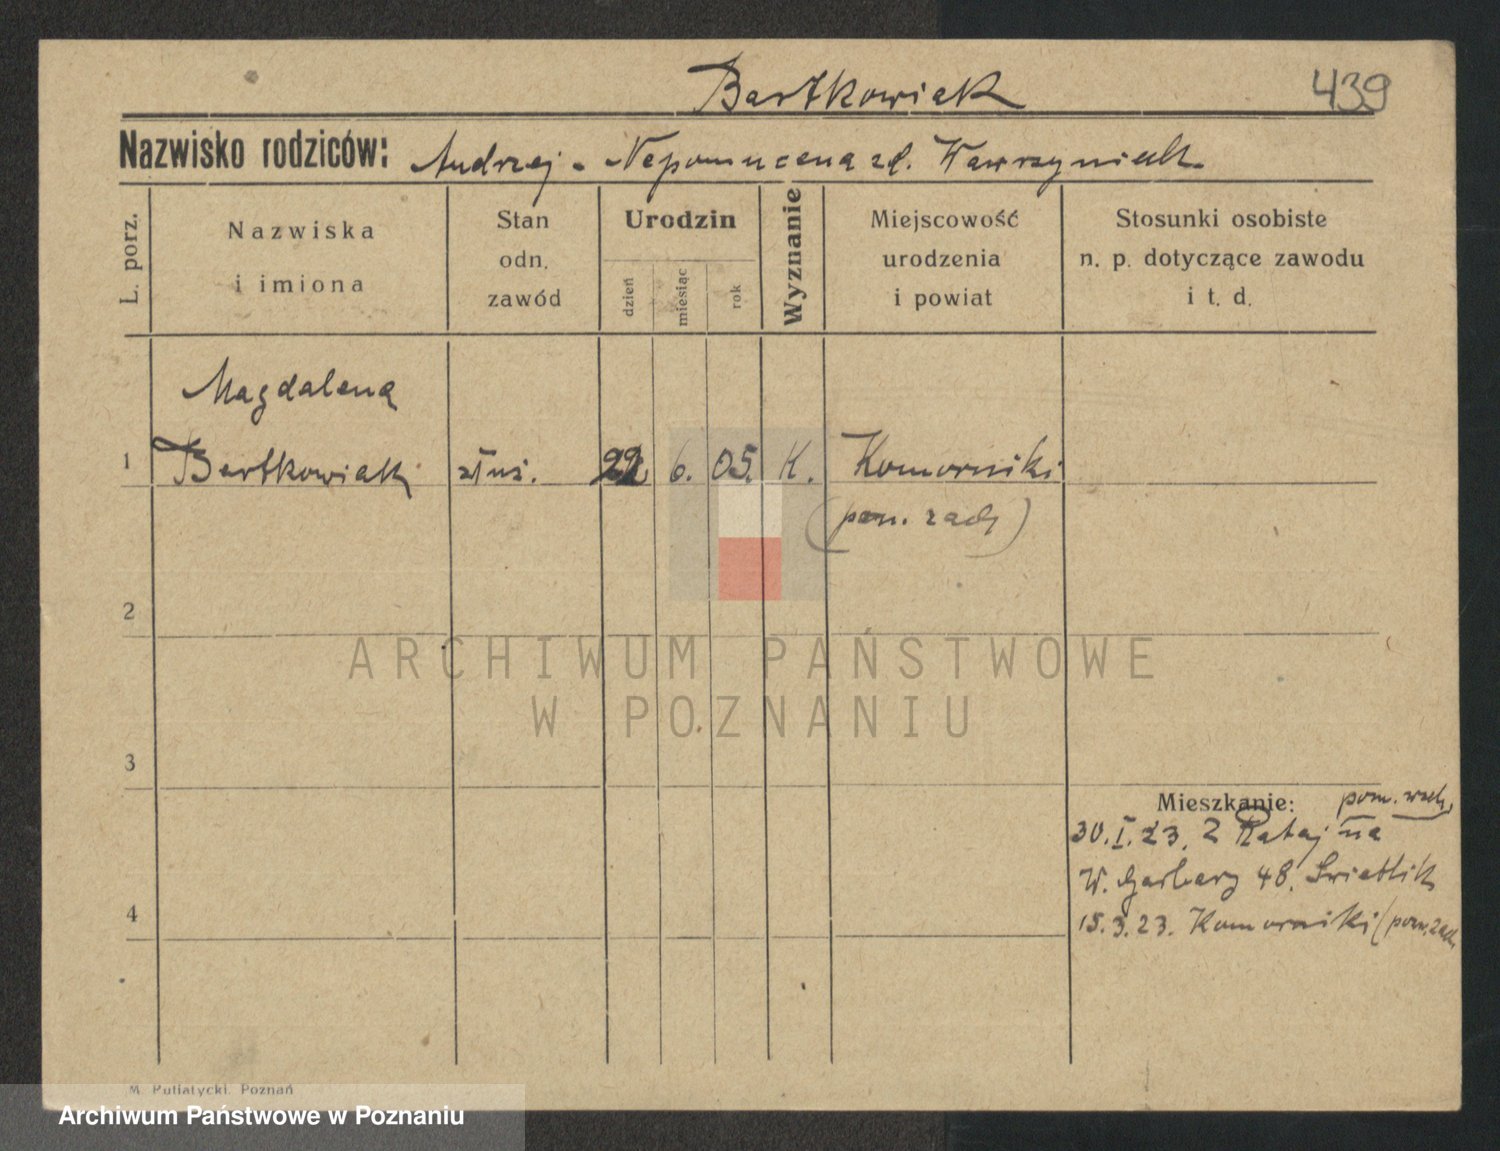 Bartkowiak
439
Nazwisko rodziców: Andrzej - Nepomucena zd. Wawrzyniak
L. porz.
Nazwiska i imiona
Stan odn. zawód
Urodzin
dzień
miesiąc
rok
Wyznanie
Miejscowość urodzenia i powiat
Stosunki osobiste n. p. dotyczące zawodu i t. d.
Magdalena
1 Bartkowiak służ. 22 6. 05. K. Komorniki
(pozn. zach)
2
ARCHIWUM PAŃSTWOWE
W POZNANIU
3
Mieszkanie: pozn. wsch.
30. I. 23. Z Rataj na
W. Garbary 48. Świetlik
4
15. 3. 23. Komorniki (pozn. zach.
M. Putiatycki. Poznań
Archiwum Państwowe w Poznaniu